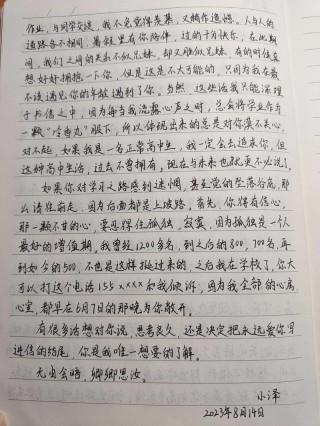 作业，与同学交谈，我不免觉得羡慕，又稍作遗憾。人与人的
道路各不相同，暑假里有你陪伴，过的十分快乐，在此期
间，我们之间的关系不似兄妹，却又胜似兄妹，有的时候真
想好好拥抱一下你，但是这是不大可能的，只因为我在最
不该遇见你的年龄遇到了你。当然，这些话我只能深埋
于书信之中，因为每当我流露心声之时，总会将学业作为
一颗"哈香丸"服下，所以体现出来的总是对你漠不关心，
对不起，如果我是一名正常高中生，我一定会去追求你，但
这种高中生活，过去不曾拥有，现在与未来也就更不必说了。
如果你对学习之路感到迷惘，甚至觉的坠落谷底，那
么请往前走，因为后面都是上坡路，首先，你得有信心，
那一颗不甘的心，要忍得住孤独，寂寞，因为孤独是一个人
最好的增值期，我曾经1200多名，到之后的800，700名，再
到如今的500，不也是这样挺过来的，之后我在学校了，你大
可以打这个电话155xxxx和我倾诉，因为我全部的心房
心室，都早在6月7日的那晚为你敞开。
有很多话想对你说，思考良久，还是决定把永远爱你写
进信的结尾，你是我唯一想要的了解。
无由会晤，卿卿思汝。
小泽
2023年8月14日